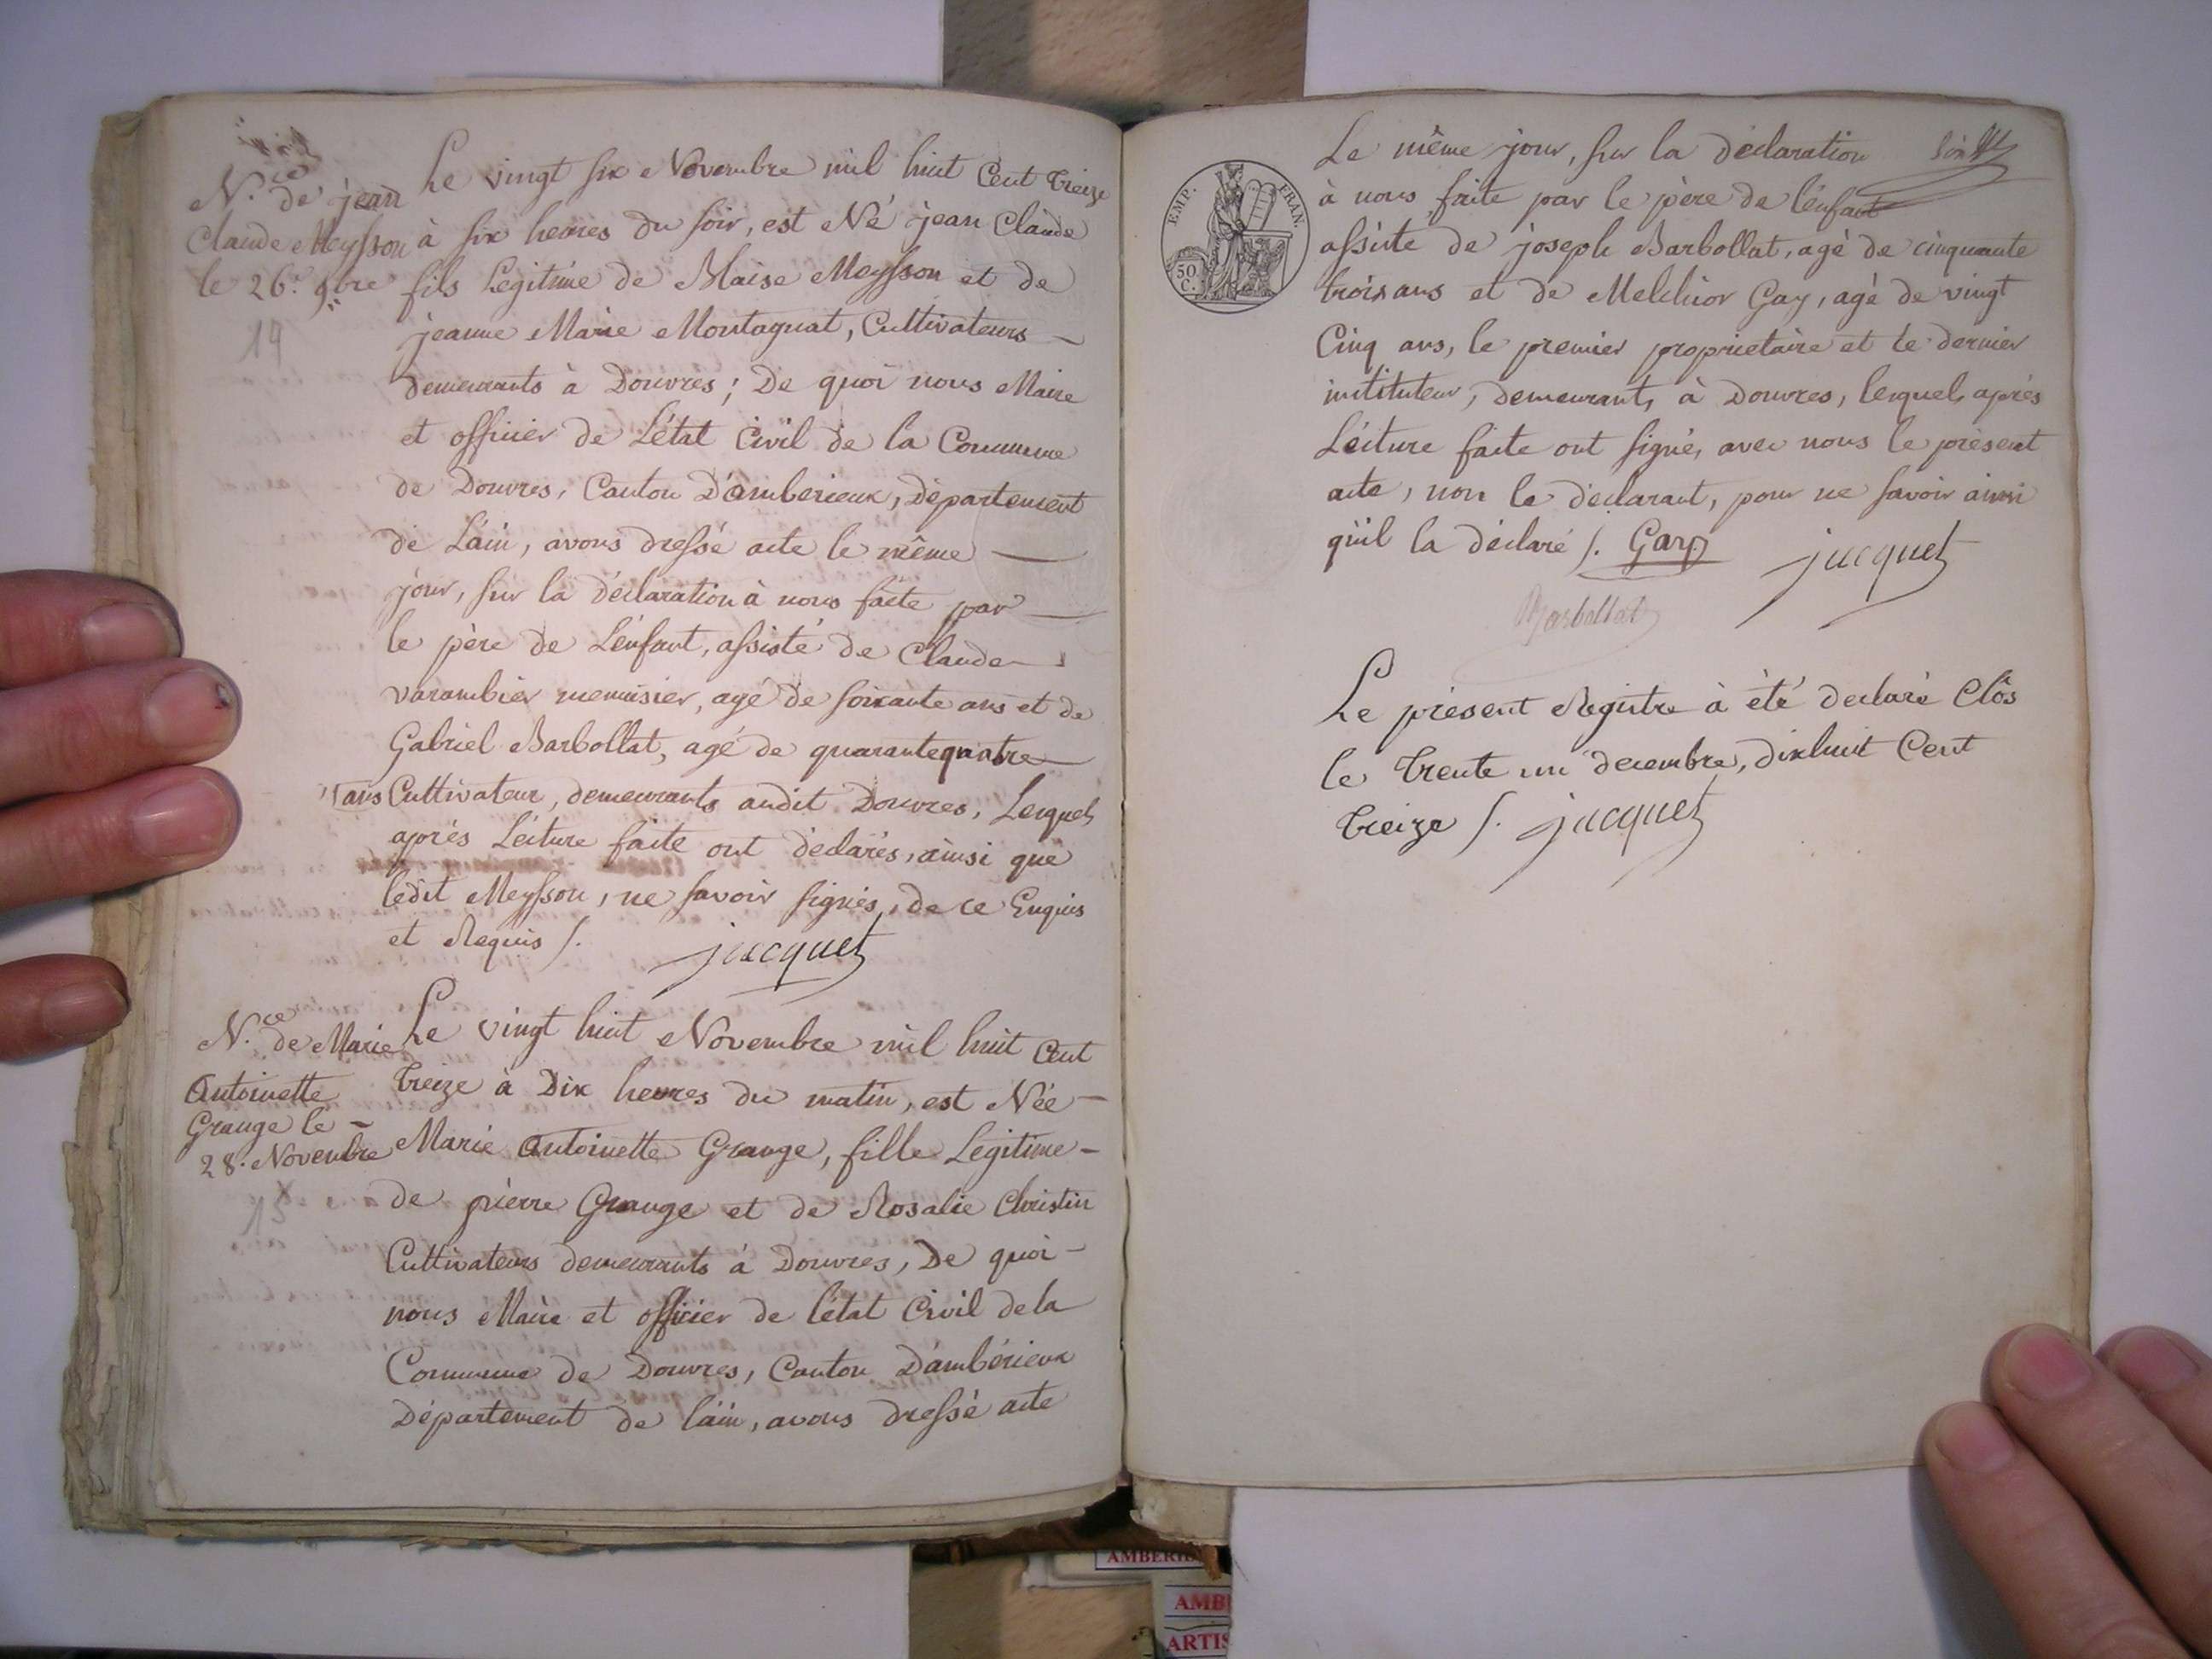 N.ce de jean
Claude Meysson
le 26.e 9bre
19
Le vingt six Novembre mil huit Cent treize
à six heures du soir, est Né jean Claude
fils Légitime de Blaise Meysson et de
jeanne Marie Montagnat, Cultivateurs
demeurants à Douvres; De quoi nous Maire
et officier de L'état Civil de la Commune
de Douvres, Canton D'amberieux, Département
de L'ain, avons dressé acte le même
jour, sur la déclaration à nous faite par
le père de L'énfant, assisté de Claude
varambier menuisier, agé de soixante ans et de
Gabriel Barbollat, agé de quarante quatre
ans Cultivateur, demeurants audit Douvres, Lesquels
après Lécture faite ont déclarés, ainsi que
ledit Meysson, ne savoir signés, de ce Enquis
et Requis /. jacquet
N.ce de Marie
Antoinette
Grange le
28. Novembre
Le vingt huit Novembre mil huit Cent
treize à Dix heures du matin, est Née
Marie Antoinette Grange, fille Légitime
de pierre Grange et de Rosalie Christin
Cultivateurs demeurants à Douvres, De quoi
nous Maire et officier de l'état Civil de la
Commune de Douvres, Canton D'ambérieux
Département de l'ain, avons dressé acte
EMP. FRAN.
50
C.
Le même jour, sur la déclaration
à nous faite par le père de l'énfant
assisté de joseph Barbollat, agé de cinquante
trois ans et de Melchior Gay, agé de vingt
Cinq ans, le premier proprietaire et le dernier
instituteur, demeurants à Douvres, lesquels après
Lécture faite ont signés avec nous le présent
acte, non le déclarant, pour ne savoir ainsi
qu'il la déclaré /. Gay jacquet
Barbollat
Le présent Registre à été declaré Clôs
le trente un decembre, dixhuit Cent
treize /. jacquet
AMBERI
AMB
ARTIS